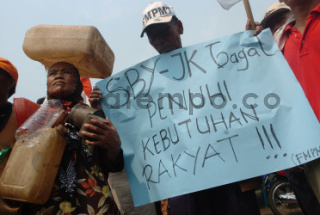 FMPM
SBY-JK Gagal
PENUHI
KEBUTUHAN
RAKYAT !!!
(FMPM)
tempo.co